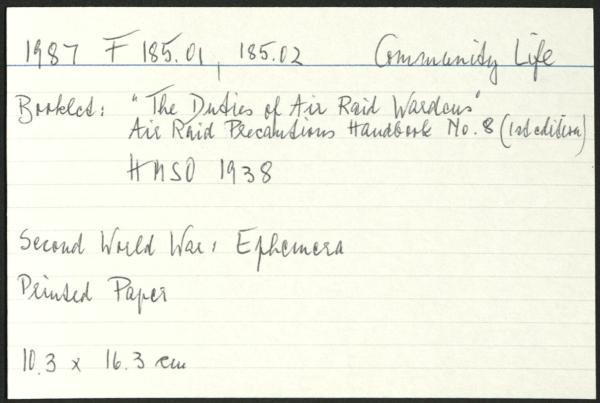 1987 F 185.01, 185.02 Community Life
Booklet: "The Duties of Air Raid Wardens"
Air Raid Precautions Handbook No. 8 (1st edition)
HMSO 1938
Second World War: Ephemera
Printed Paper
10.3 x 16.3 cm